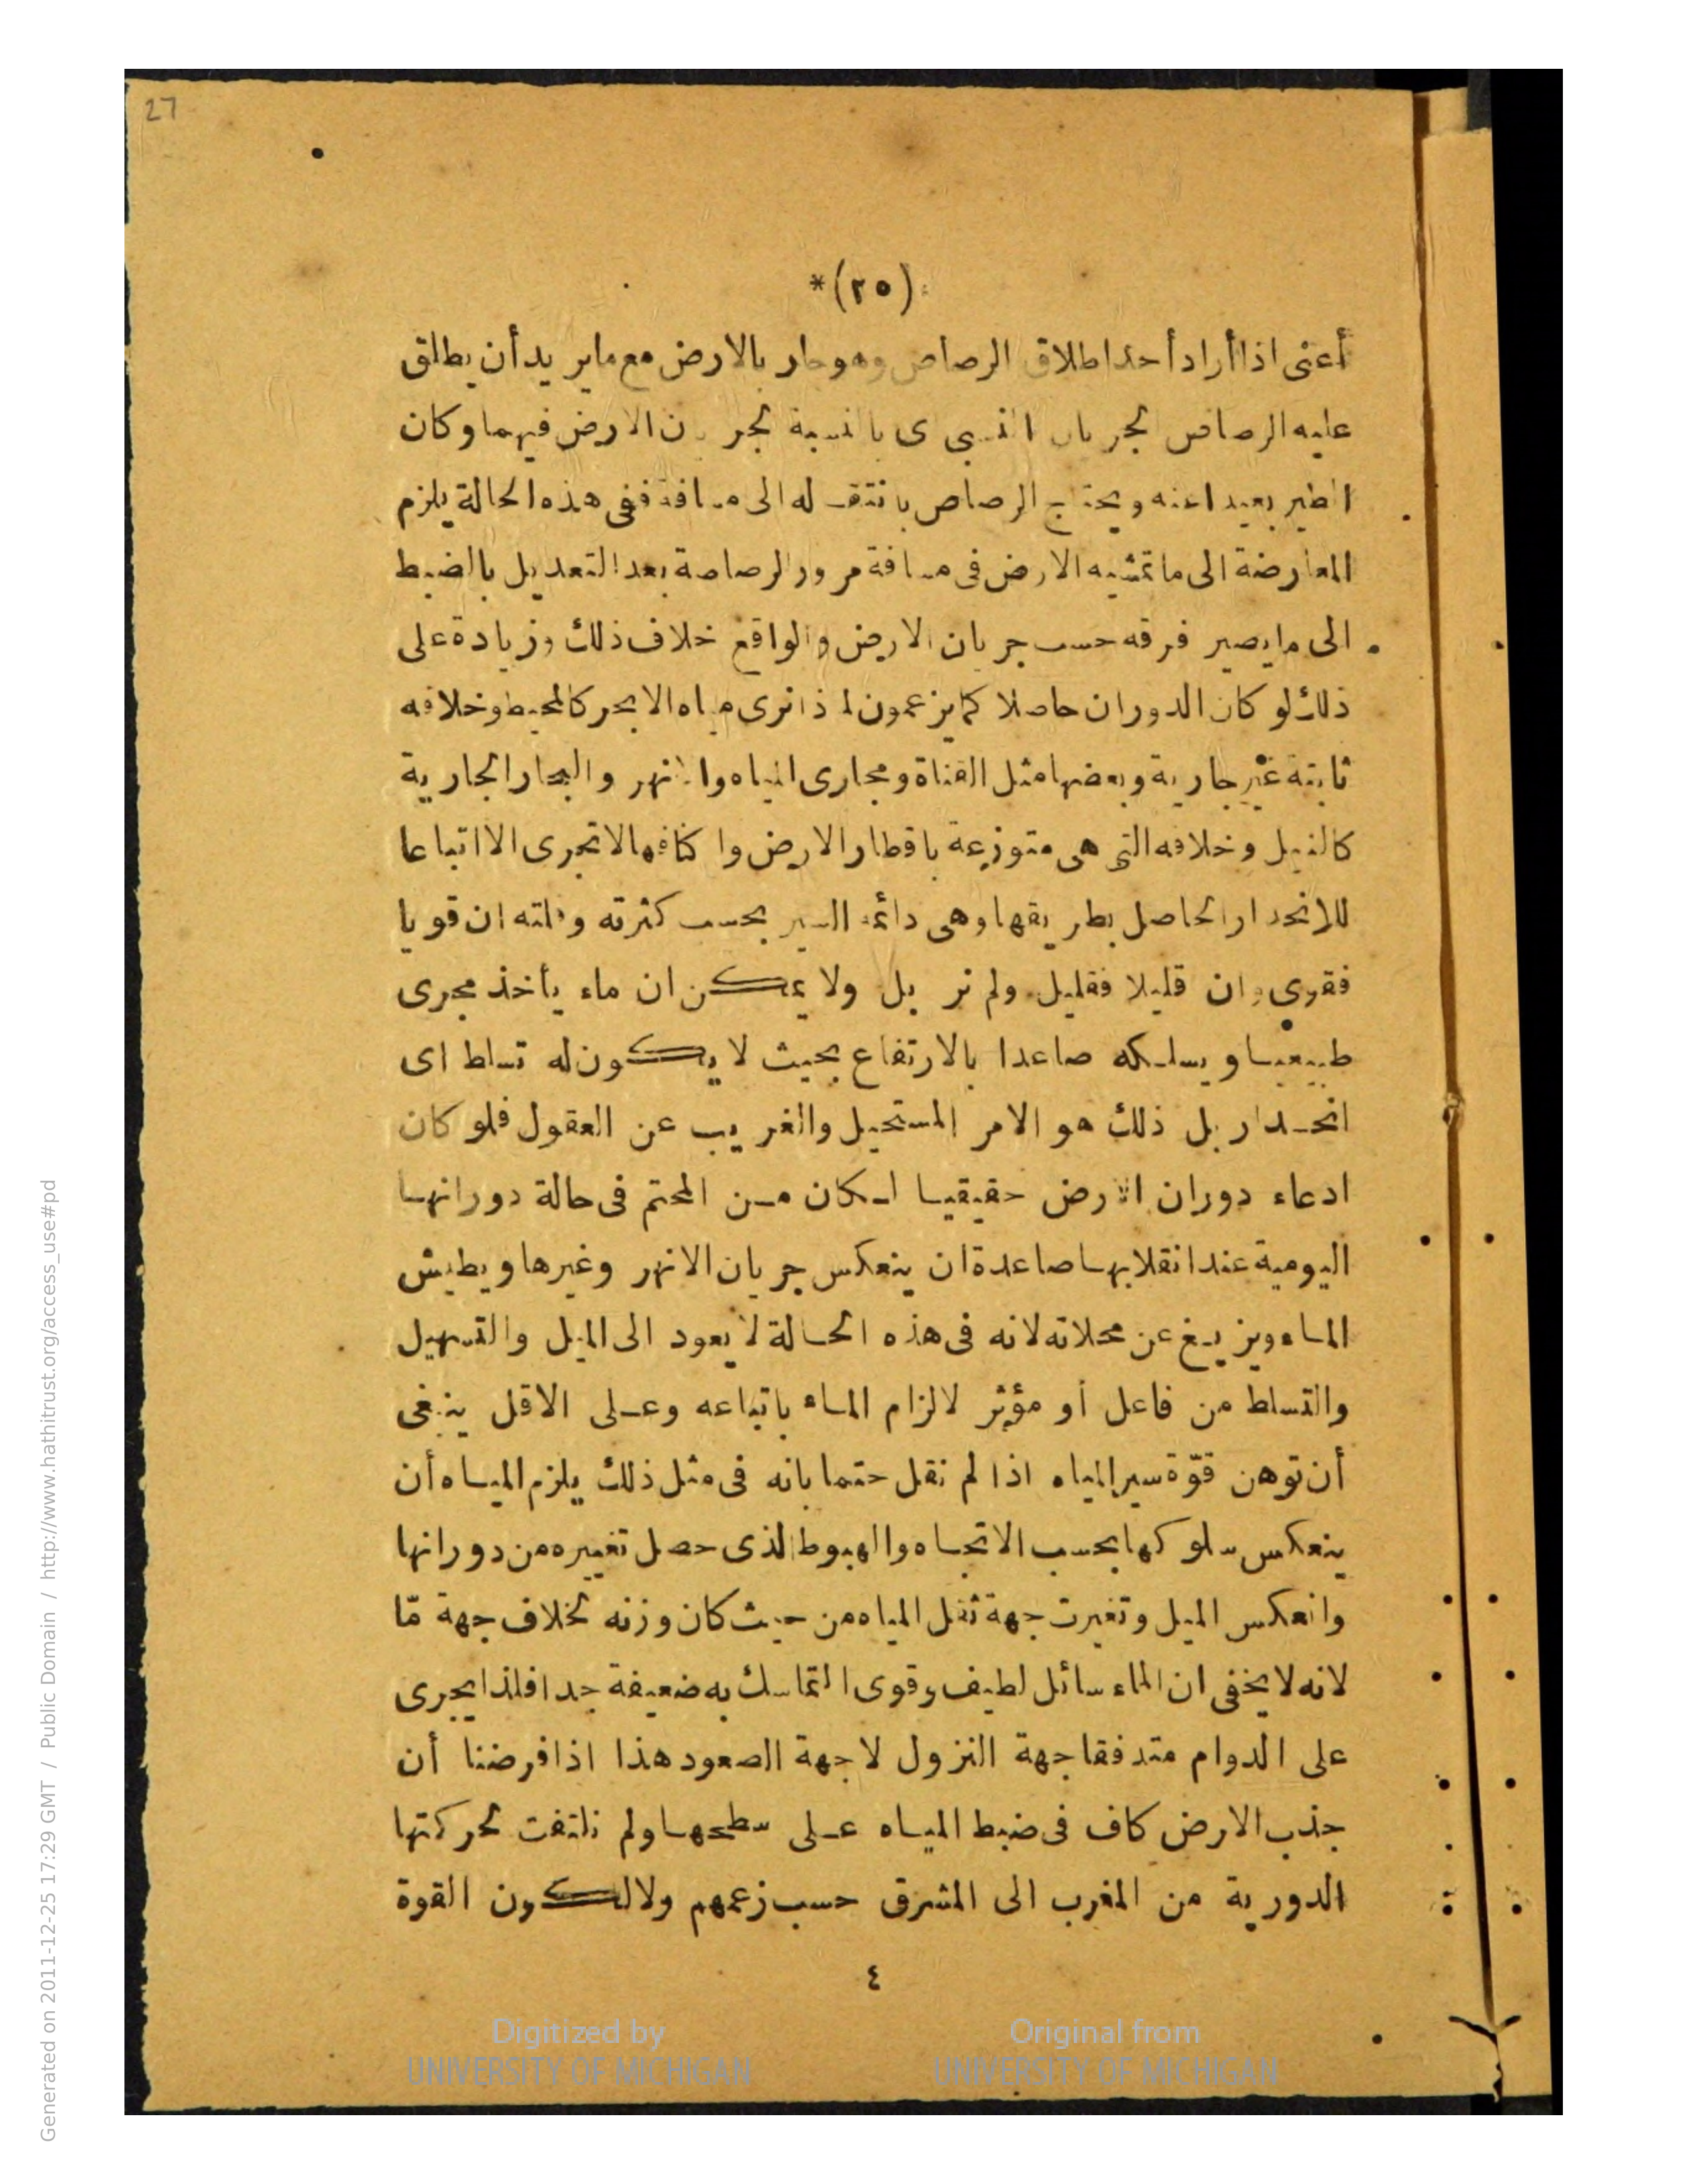 27
(٢٥)*
أعنى اذا أراد أحد اطلاق الرصاص وهو جار بالارض مع ما يريد أن يطلق
عليه الرصاص بالنسبة الارض فيهما وكان
الطير بعيدا عنه ويحتاج الرصاص الى مسافة ففى هذه الحالة يلزم
المعارضة الى ما تمشيه الارض فى مسافة مرور الرصاصة بعد التعديل بالضبط
الى ما يصير فرقه حسب جريان الارض والواقع خلاف ذلك وزيادة على
ذلك لو كان الدوران حاصلا كما يزعمون نرى مياه الابحر كالمحيط وخلافه
ثابتة غير جارية وبعضها مثل القناة ومجارى المياه والانهر والبحار الجارية
كالنيل وخلافه التى هى متوزعة باقطار الارض واكنافها لا تجرى الا اتباعا
للانحدار الحاصل بطريقها وهى دائمة السير بحسب كثرته وقلته ان قويا
فقوى وان قليلا فقليل ولم نر بل ولا يمكن ان ماء يأخذ مجرى
طبيعيا ويسلكه صاعدا بالارتفاع بحيث لا يكون له تسلط اى
انحدار بل ذلك هو الامر المستحيل والغريب عن العقول فلو كان
ادعاء دوران الارض حقيقيا لكان من المحتم فى حالة دورانها
اليومية عند انقلابها صاعدة ان ينعكس جريان الانهر وغيرها ويطيش
الماء ويزيغ عن محلاته لانه فى هذه الحالة لا يعود الى الميل والتسهيل
والتسلط من فاعل أو مؤثر لالزام الماء باتباعه وعلى الاقل ينبغى
أن توهن قوّة سير المياه اذا لم نقل حتما بانه فى مثل ذلك يلزم المياه أن
ينعكس سلوكها بحسب الاتجاه والهبوط الذى حصل تغييره من دورانها
وانعكس الميل وتغيرت جهة ثقل المياه من حيث كان وزنه بخلاف جهة مّا
لانه لا يخفى ان الماء سائل لطيف وقوى التماسك به ضعيفة جدا فلذا يجرى
على الدوام متدفقا جهة النزول لا جهة الصعود هذا اذا فرضنا أن
جذب الارض كاف فى ضبط المياه على سطحها ولم نلتفت لحركتها
الدورية من المغرب الى المشرق حسب زعمهم ولا لكون القوة
٤
Digitized by
UNIVERSITY OF MICHIGAN
Original from
UNIVERSITY OF MICHIGAN
Generated on 2011-12-25 17:29 GMT / Public Domain / http://www.hathitrust.org/access_use#pd